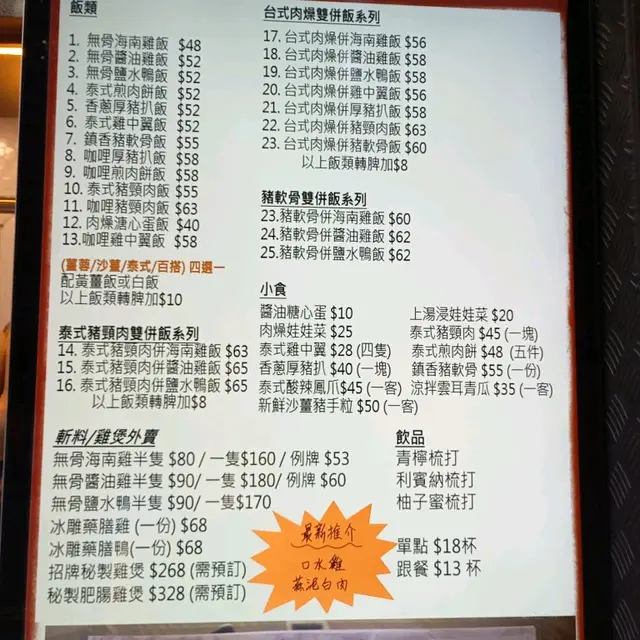 飯類
1. 無骨海南雞飯 $48
2. 無骨醬油雞飯 $52
3. 無骨鹽水鴨飯 $52
4. 泰式煎肉餅飯 $52
5. 香蔥厚豬扒飯 $52
6. 泰式雞中翼飯 $52
7. 鎮香豬軟骨飯 $55
8. 咖哩厚豬扒飯 $58
9. 咖哩煎肉餅飯 $58
10. 泰式豬頸肉飯 $55
11. 咖哩豬頸肉飯 $63
12. 肉燥溏心蛋飯 $40
13.咖哩雞中翼飯 $58
(薑蓉/沙薑/泰式/百搭) 四選一
配黃薑飯或白飯
以上飯類轉髀加$10
泰式豬頸肉雙併飯系列
14. 泰式豬頸肉併海南雞飯 $63
15. 泰式豬頸肉併醬油雞飯 $65
16. 泰式豬頸肉併鹽水鴨飯 $65
以上飯類轉髀加$8
台式肉燥雙併飯系列
17. 台式肉燥併海南雞飯 $56
18. 台式肉燥併醬油雞飯 $58
19. 台式肉燥併鹽水鴨飯 $58
20. 台式肉燥併雞中翼飯 $56
21. 台式肉燥併厚豬扒飯 $58
22. 台式肉燥併豬頸肉飯 $63
23. 台式肉燥併豬軟骨飯 $60
以上飯類轉髀加$8
豬軟骨雙併飯系列
23.豬軟骨併海南雞飯 $60
24.豬軟骨併醬油雞飯 $62
25.豬軟骨併鹽水鴨飯 $62
小食
醬油糖心蛋 $10
肉燥娃娃菜 $25
泰式雞中翼 $28 (四隻)
香蔥厚豬扒 $40 (一塊)
泰式酸辣鳳爪$45 (一客)
新鮮沙薑豬手粒 $50 (一客)
上湯浸娃娃菜 $20
泰式豬頸肉 $45 (一塊)
泰式煎肉餅 $48 (五件)
鎮香豬軟骨 $55 (一份)
涼拌雲耳青瓜 $35 (一客)
斬料/雞煲外賣
無骨海南雞半隻 $80 / 一隻$160 / 例牌 $53
無骨醬油雞半隻 $90/ 一隻 $180/ 例牌 $60
無骨鹽水鴨半隻 $90/ 一隻$170
冰雕藥膳雞 (一份) $68
冰雕藥膳鴨(一份) $68
招牌秘製雞煲 $268 (需預訂)
秘製肥腸雞煲 $328 (需預訂)
最新推介
口水雞
蒜泥白肉
飲品
青檸梳打
利賓納梳打
柚子蜜梳打
單點 $18杯
跟餐 $13 杯